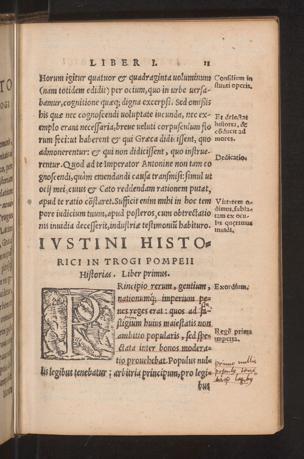 LIBER I. 11
Horum igitur quatuor & quadraginta uoluminum
(nam totidem edidit) per otium, quo in urbe uersa-
bamur, cognitione quæq; digna excerpsi. Sed omissis
his quæ nec cognoscendi uoluptate iucunda, nec ex-
emplo erant necessaria, breue ueluti corpusculum flo
rum feci: ut haberent & qui Græca didicissent, quo
admonerentur: & qui non didicissent, quo instrue-
rentur. Quod ad te Imperator Antonine non tam co
gnoscendi, quàm emendandi causa transmisi: simul ut
ocij mei, cuius & Cato reddendam rationem putat,
apud te ratio cōstaret. Sufficit enim mihi in hoc tem
pore iudicium tuum, apud posteros, cum obtrectatio
nis inuidia decesserit, industriæ testimoniū habituro.
Consilium in
sumti operis.
Et delectat
historia, &
cōducit ad
mores.
Dedicatio.
IVSTINI HISTO-
RICI IN TROGI POMPEII
Historias. Liber primus.
PRincipio rerum, gentium,
nationumq; imperium pe-
nes reges erat: quos ad fa-
stigium huius maiestatis non
ambitio popularis, sed spe-
ctata inter bonos modera-
tio prouehebat. Populus nul-
lis legibus tenebatur; arbitria principum, pro legi-
bus
Exordium.
Regū prima
imperia.